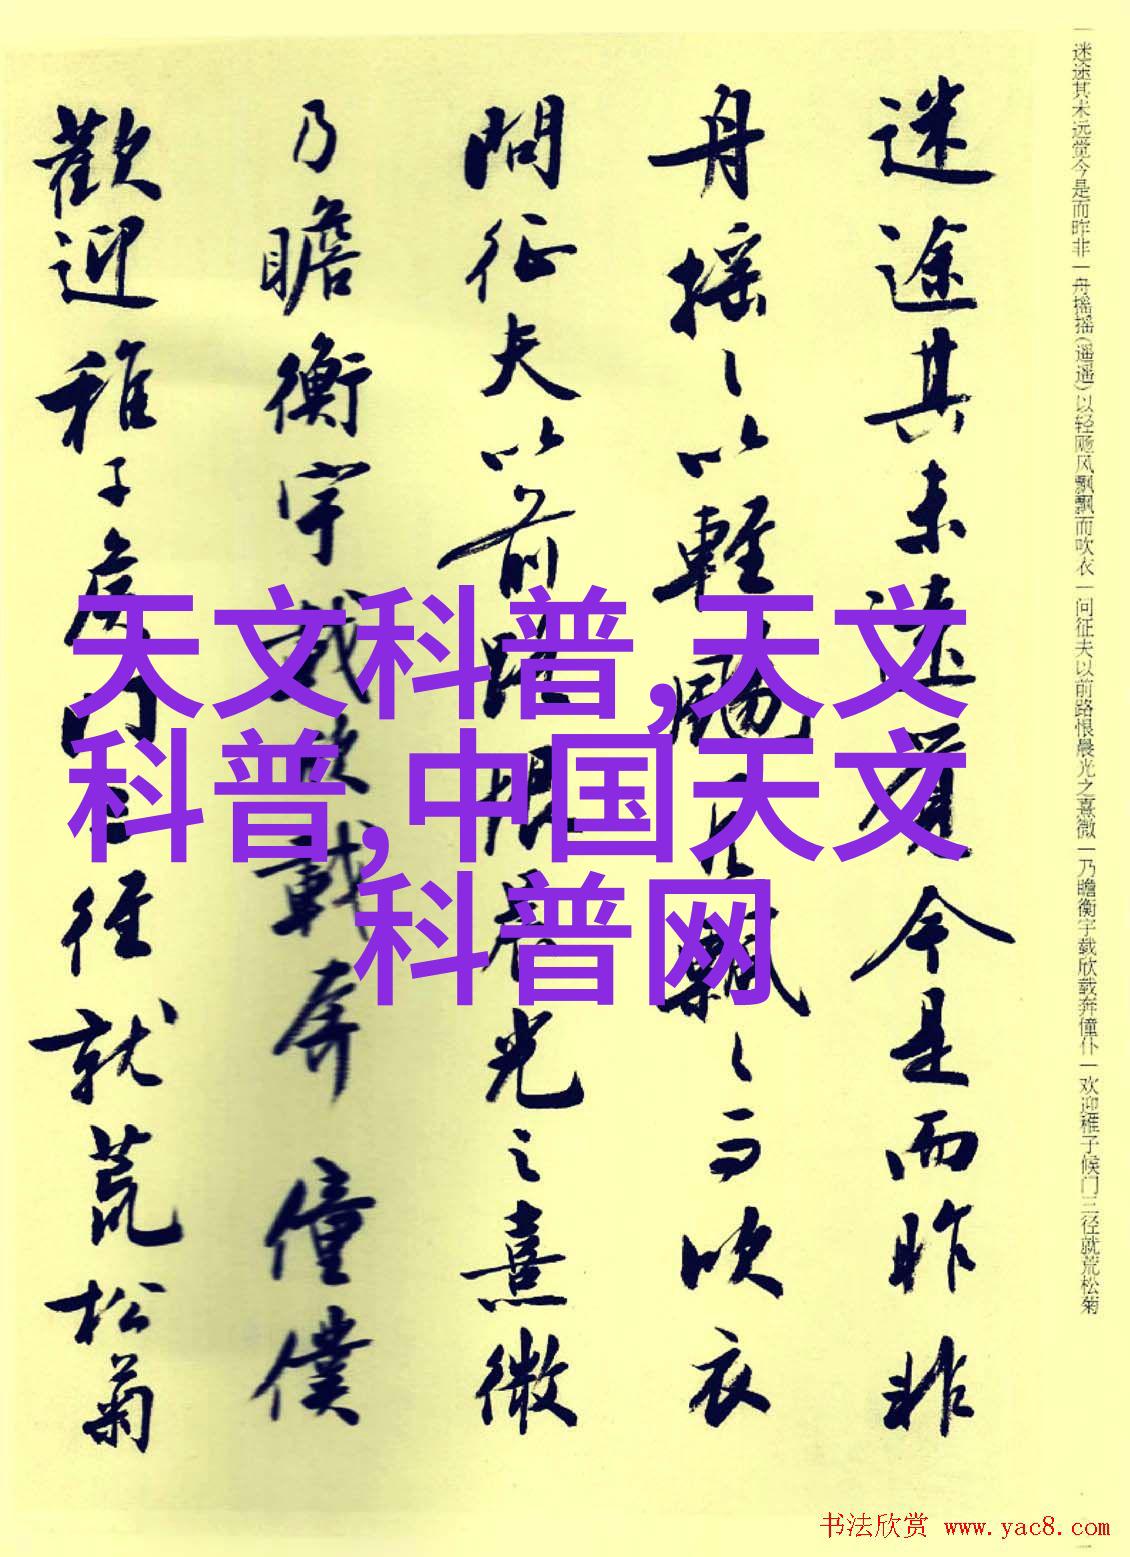 迷途其未远觉今是而昨非一舟摇摇(遥遥)以轻飏风飘飘而吹衣一问征夫以前路恨晨光之熹微一乃瞻衡宇载欣载奔僮仆一欢迎稚子候门三径就荒松菊
迷途其未遠覺今是而昨非
舟摇〻以輕颺風飄〻而吹衣
問征夫以前路恨晨光之熹微
乃瞻衡宇載欣載奔僮僕
歡迎稚子候門三徑就荒松菊
天文科普,天文
科普,中国天文
科普网
书法欣赏 www.yac8.com